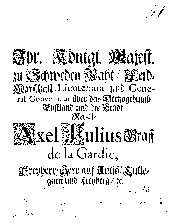 Ihr. Königl. Majest.
zu Schweden Raht / Feld-
Marschall Lieutenant und Gene-
ral Gouverneur über das Hertzogthumb
Ehstland und die Stadt
Reval
Axel Julius Graff
de la Gardie,
Freyherr, Herr auf
und &c.